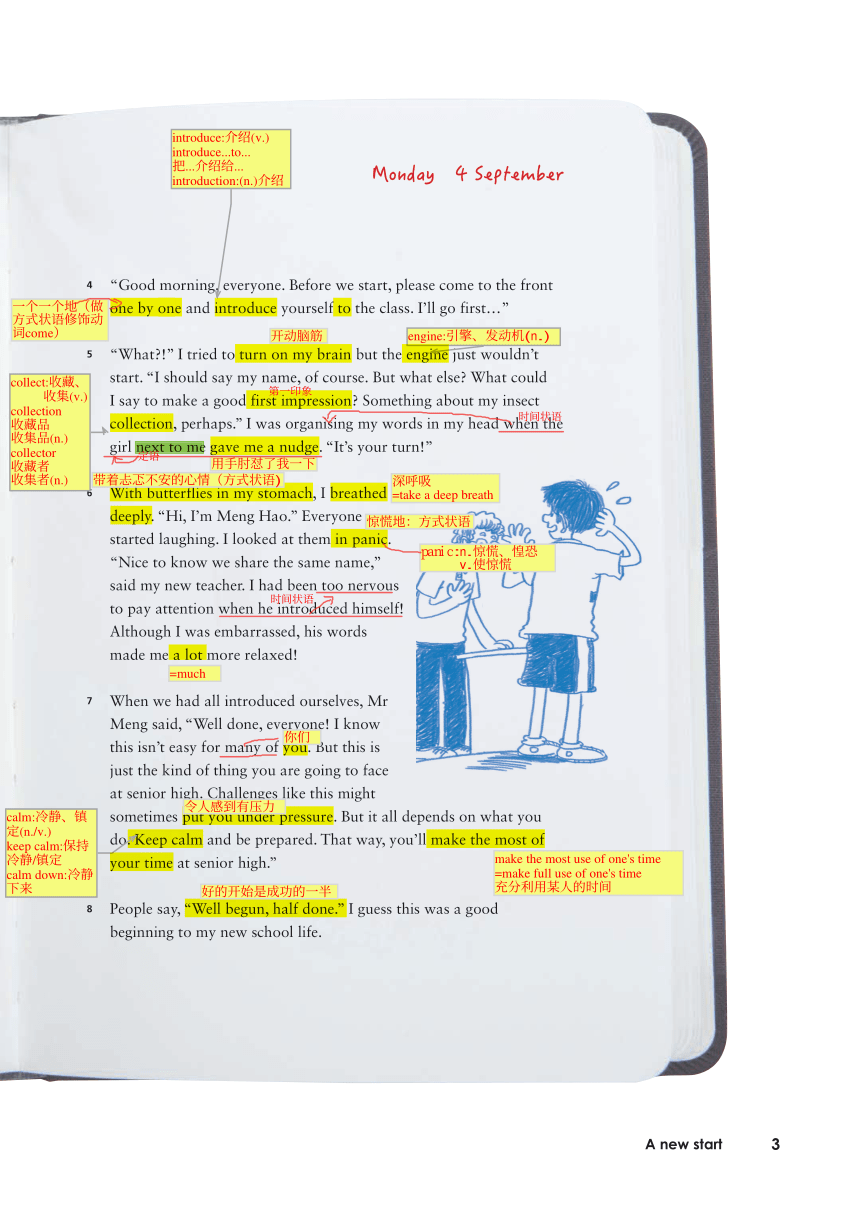 introduce:介绍(v.)
introduce...to...
把...介绍给...
introduction:(n.)介绍
Monday 4 September
4 “Good morning, everyone. Before we start, please come to the front
one by one and introduce yourself to the class. I’ll go first…”
一个一个地（做
方式状语修饰动
词come）
开动脑筋
engine:引擎、发动机(n.)
5 “What?!” I tried to turn on my brain but the engine just wouldn’t
start. “I should say my name, of course. But what else? What could
第一印象
I say to make a good first impression? Something about my insect
时间状语
collection, perhaps.” I was organising my words in my head when the
girl next to me gave me a nudge. “It’s your turn!”
collect:收藏、
收集(v.)
collection
收藏品
收集品(n.)
collector
收藏者
收集者(n.)
定语
用手肘怼了我一下
带着忐忑不安的心情（方式状语)
深呼吸
=take a deep breath
6 With butterflies in my stomach, I breathed
deeply. “Hi, I’m Meng Hao.” Everyone
惊慌地：方式状语
started laughing. I looked at them in panic.
panic:n.惊慌、惶恐
v.使惊慌
“Nice to know we share the same name,”
said my new teacher. I had been too nervous
时间状语
to pay attention when he introduced himself!
Although I was embarrassed, his words
made me a lot more relaxed!
=much
7 When we had all introduced ourselves, Mr
Meng said, “Well done, everyone! I know
你们
this isn’t easy for many of you. But this is
just the kind of thing you are going to face
at senior high. Challenges like this might
令人感到有压力
sometimes put you under pressure. But it all depends on what you
do. Keep calm and be prepared. That way, you’ll make the most of
your time at senior high.”
calm:冷静、镇
定(n./v.)
keep calm:保持
冷静/镇定
calm down:冷静
下来
make the most use of one's time
=make full use of one's time
充分利用某人的时间
好的开始是成功的一半
8 People say, “Well begun, half done.” I guess this was a good
beginning to my new school life.
A new start 3